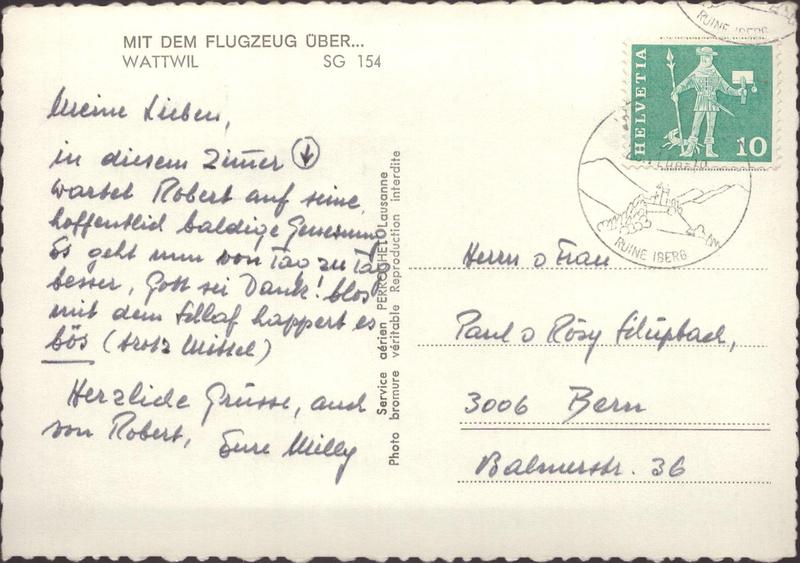 MIT DEM FLUGZEUG ÜBER...
WATTWIL SG 154
Meine Lieben,
in diesem Zimmer ↓
wartet Robert auf seine,
hoffentlich baldige Genesung
Es geht nun von Tag zu Tag
besser, Gott sei Dank! blos
mit dem Schlaf happert es
bös (trotz Mittel)
Herzliche Grüsse, auch
von Robert, Eure Milly
Service aérien PERROCHET Lausanne
Photo bromure véritable Reproduction interdite
RUINE IBERG
HELVETIA
10
RUINE IBERG
Herrn u Frau
Paul u Rösy Schüpbach,
3006 Bern
Balmerstr. 36